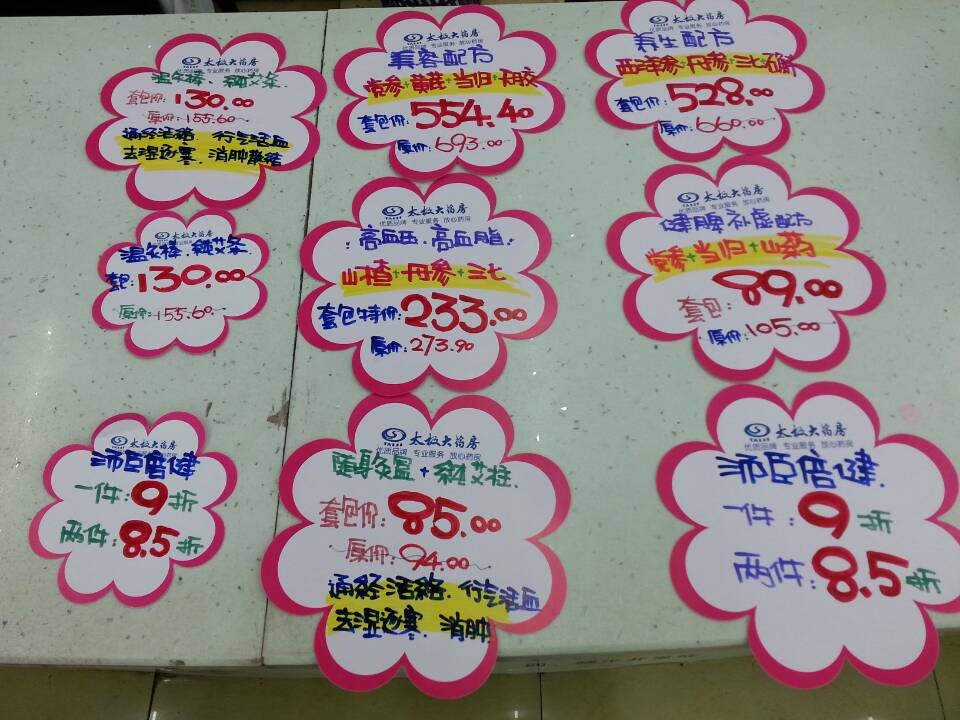 太极大药房
优质品牌 专业服务 放心药房
温灸棒、纯艾条.
套包价:130.00
原价:155.60
通经活络.行气活血
去湿逐寒.消肿散结
太极大药房
优质品牌 专业服务 放心药房
美容配方
党参+黄芪+当归+
套包价:554.40
原价:693.00
太极大药房
优质品牌 专业服务 放心药房
养生配方
西洋参+丹参+三七+石斛
套包价:528.00
原价:660.00
太极大药房
温灸棒、纯艾条
套包:130.00
原价:155.60
太极大药房
优质品牌 专业服务 放心药房
高血压、高血脂:
山楂+丹参+三七
套包特价:233.00
原价:273.90
太极大药房
优质品牌 专业服务 放心药房
健脾补虚配方
党参+当归+山药
套包:89.00
原价:105.00
太极大药房
优质品牌 专业服务 放心药房
汤臣倍健
一件:9折
两件:8.5折
太极大药房
优质品牌 专业服务 放心药房
随身灸盒+纯艾柱.
套包价:85.00
原价:94.00
通经活络.行气活血
去湿逐寒.消肿
太极大药房
优质品牌 专业服务 放心药房
汤臣倍健.
一件:9折
两件:8.5折